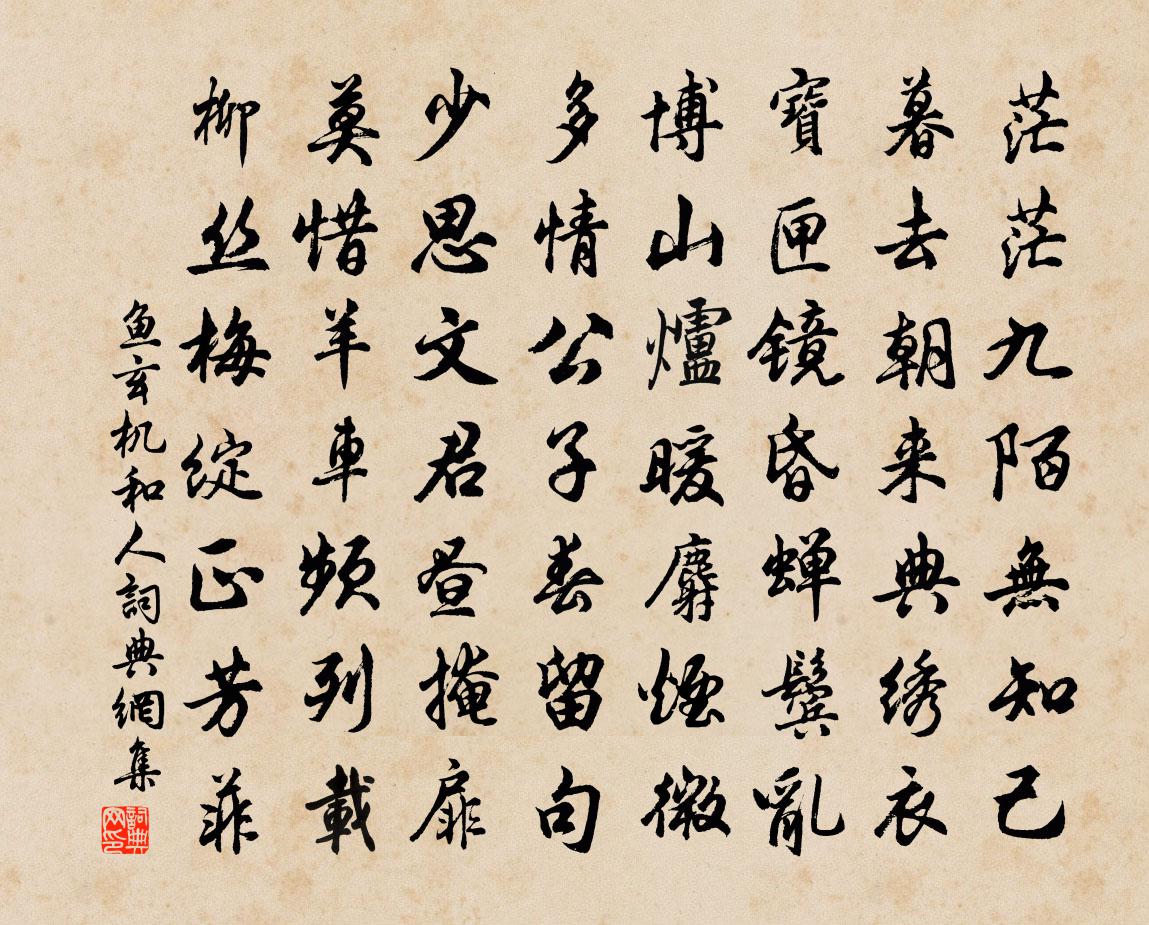 茫茫九陌無知己
暮去朝来典绣衣
寶匣镜昏蝉鬓亂
博山爐暖麝煙微
多情公子春留句
少思文君昼掩扉
莫惜羊車频列載
柳丝梅綻正芳菲
鱼玄机和人詞典網集
詞典网印